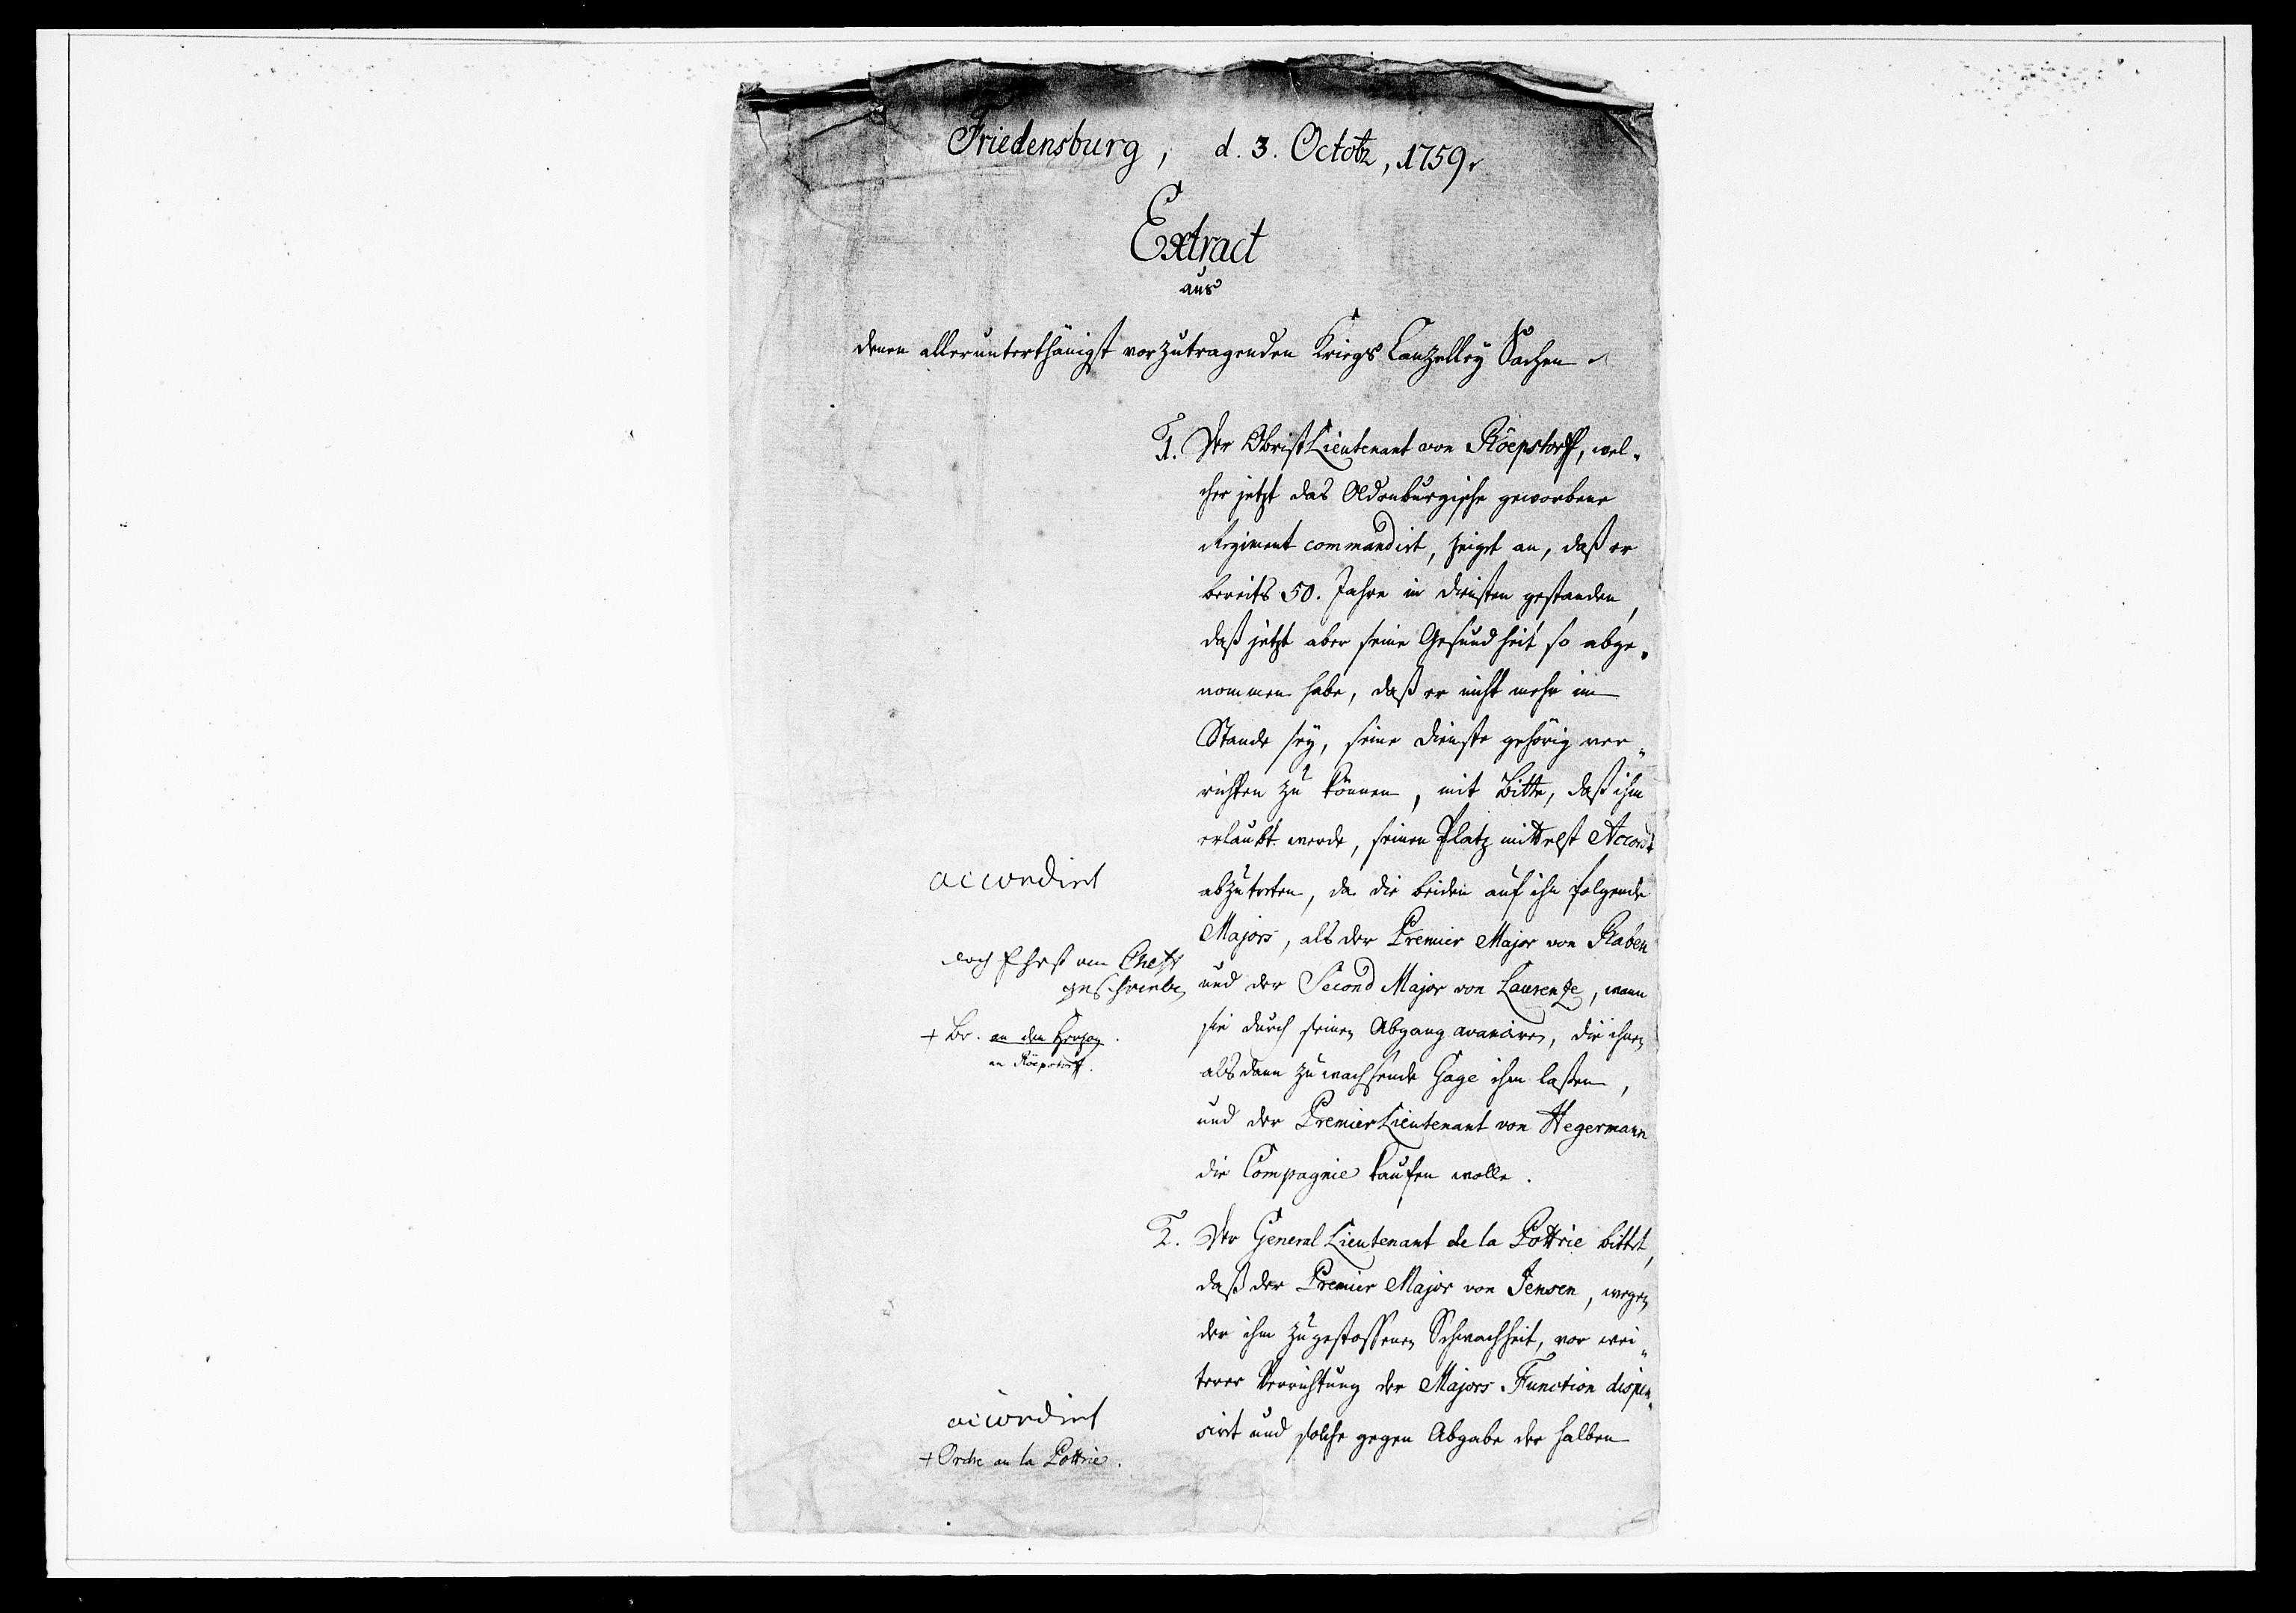 Friedensburg, d. 3. Octobr, 1759.
Extract
aus
denen allerunterthänigst vorzutragenden Kriegs Canzelley Sachen
1. Der ObristLieutenant von Röepstorff, wel-
cher jetzt das Oldenburgische geworbene
Regiment commandirt, zeiget an, daß er
bereits 50. Jahre in diensten gestanden,
daß jetzt aber seine Gesundheit so abge-
nommen habe, daß er nicht mehr im
Stande sey, seine Dienste gehörig ver-
richten zu können, mit Bitte, daß ihm
erlaubt werde, seinen Platz mittelst Accord
abzutreten, da die beiden auf ihn folgende
Majors, als der Premier Major von Raben
und der Second Major von Laurenze, wann
sie durch seinen Abgang avanciren, die ihnen
alsdann zuwachsende Gage ihm laßen,
und der PremierLieutenant von Hegermann
die Compagnie kaufen wolle.
accordirt
noch Ehrst vom Cheff
geschrieben
+ Br. an den Herzog.
an Röepstorff.
2. Der General Lieutenant de la Pottrie bittet,
daß der Premier Major von Jensen, wegen
der ihm zugestossenen Schwachheit, vor wei-
terer Verrichtung der Majors-Function dispen-
sirt und solche gegen Abgabe der halben
accordirt
+ Ordre an la Pottrie.